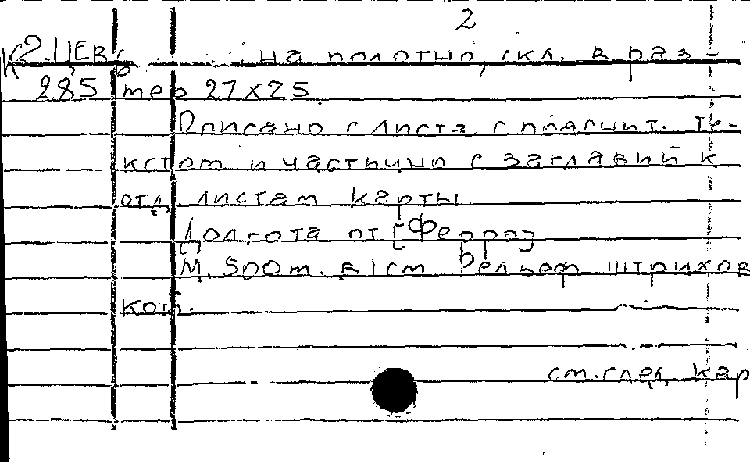 2
К 2-ЦЕВ/8 на полотно, скл. в раз-
285 мер 27х25
Описано с листа с пояснит. те-
кстом и частично с заглавий к
отд. листам карты
Долгота от [Ферро]
М. 500m. в 1 см. Рельеф штрихов
кой.
см. след. кар